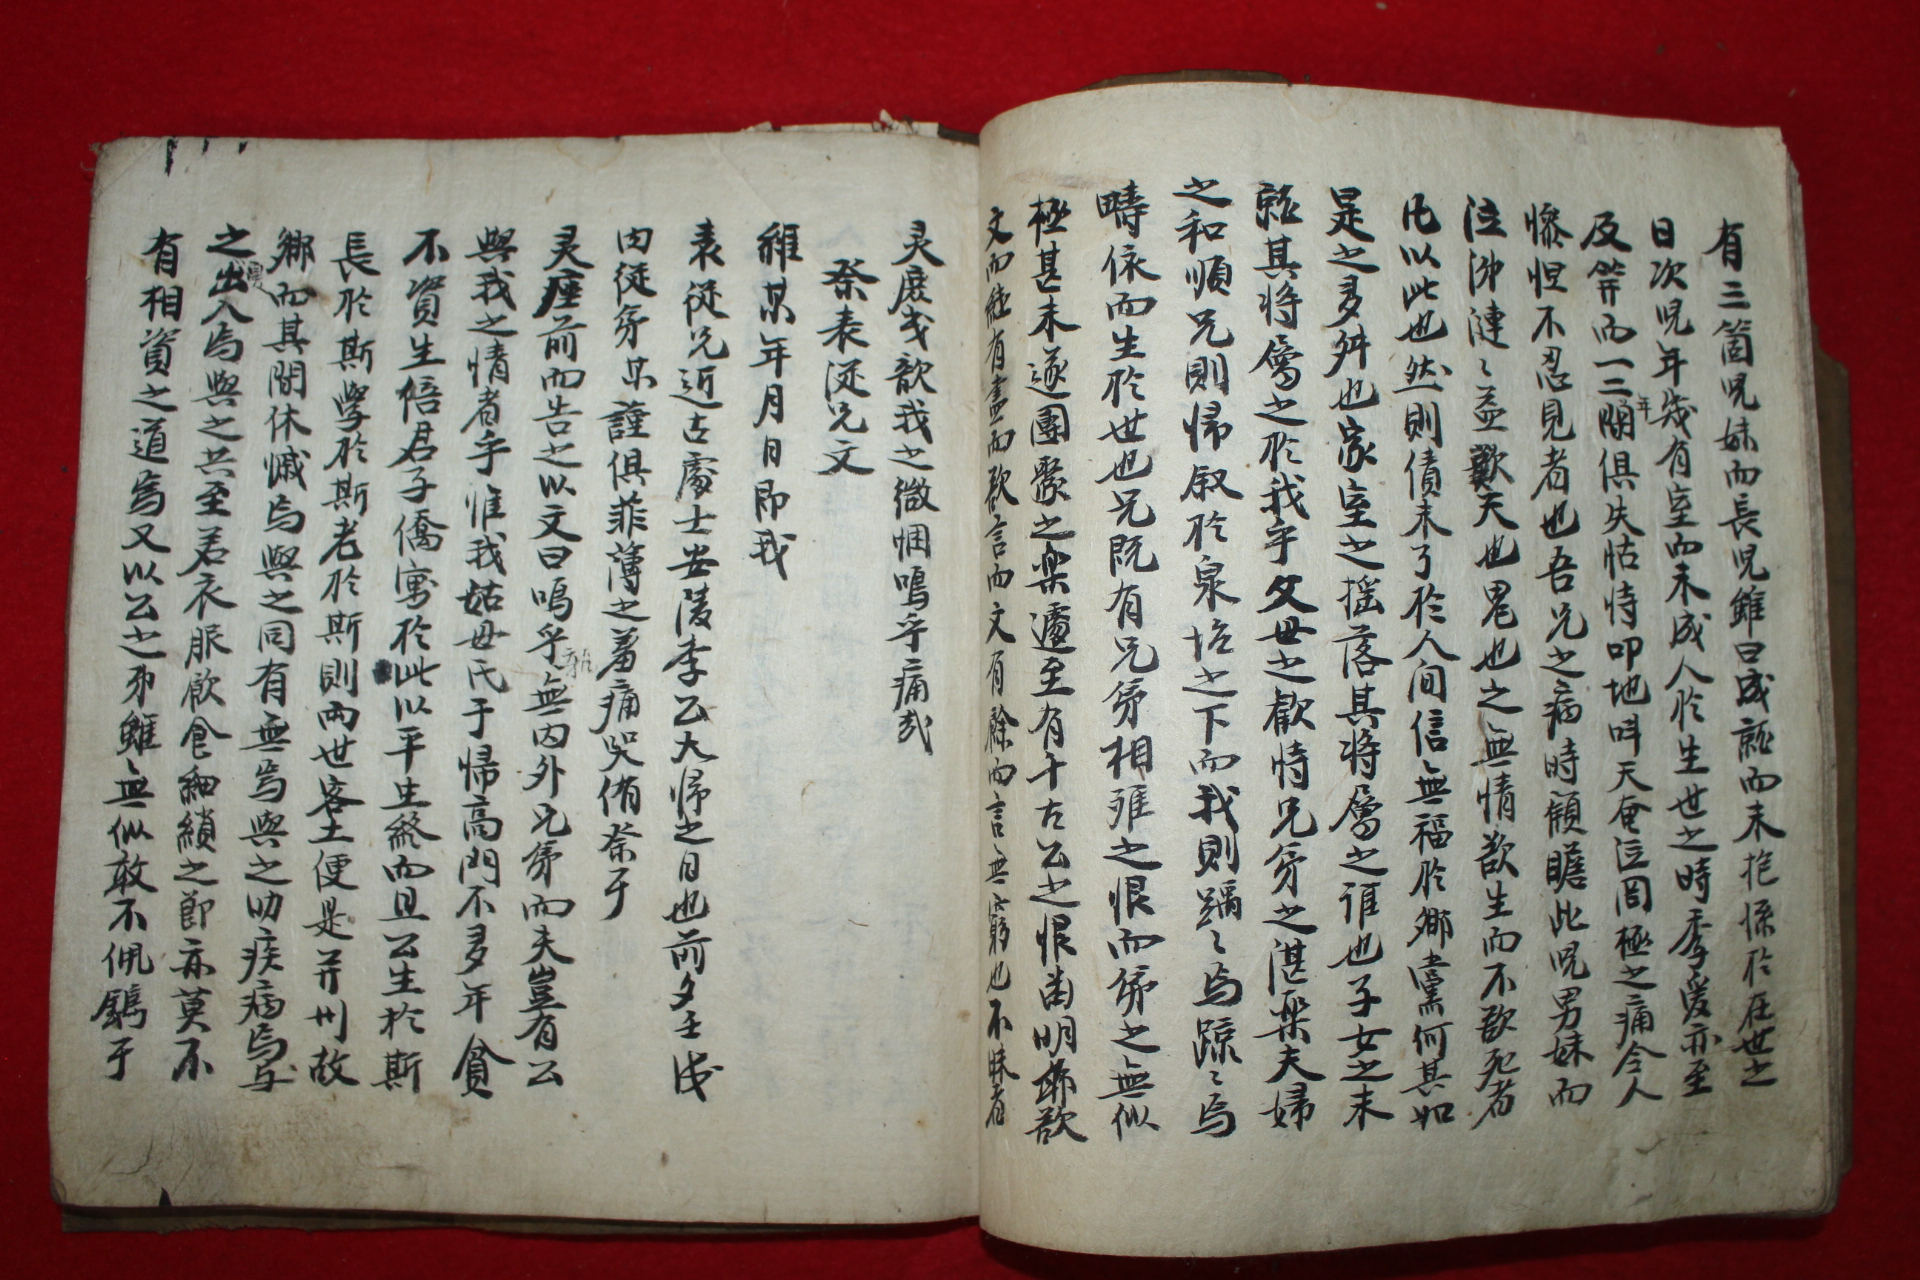 有三箇児妹而長児雖曰成就而未抱孫於在世之
日次児年幾有室而未成人於生世之時季爰亦至
反笄而一二年間俱失怙恃叩地呌天奄泣罔極之痛令人
慘怛不忍見者也吾兄之病時顧瞻此児男妹而
泣涕漣〻益歎天也鬼也之無情欲生而不欲死者
凡以此也然則債未了於人间信無福於鄉黨何其如
是之多舛也家室之搖落其將屬之誰也子女之未
就其將屬之於我乎父母之歡恃兄弟之湛樂夫婦
之和順兄則帰叙於泉坮之下而我則踽〻焉踪〻焉
疇依而生於世也兄旣有兄弟相殣之恨而弟之無似
極甚未遂團聚之樂遽至有千古公之恨歯明崩欲
文而絰有盡而欲言而文有餘而言無窮也不昧者
灵庶或歆我之微悃嗚乎痛哉
祭表従兄文
維某年月日即我
表従兄近古處士安陵李公大帰之日也前夕壬戌
内従弟某謹俱菲薄之羞痛哭侑奈于
灵座前而告之以文曰嗚乎孰無内外兄弟而夫豈有公
與我之情者乎惟我姑母氏于帰高門不多年貧
不資生偣君子僑寓於此以平生終而且公生於斯
長於斯學於斯老於斯則兩世客土便是并州故
鄉而其閒休慽焉與之同有無焉與之助疾病焉与
之出入焉與之共至若衣服飮食細鎖之節亦莫不
有相資之道焉又以公之弟雖無似敢不佩鐫于